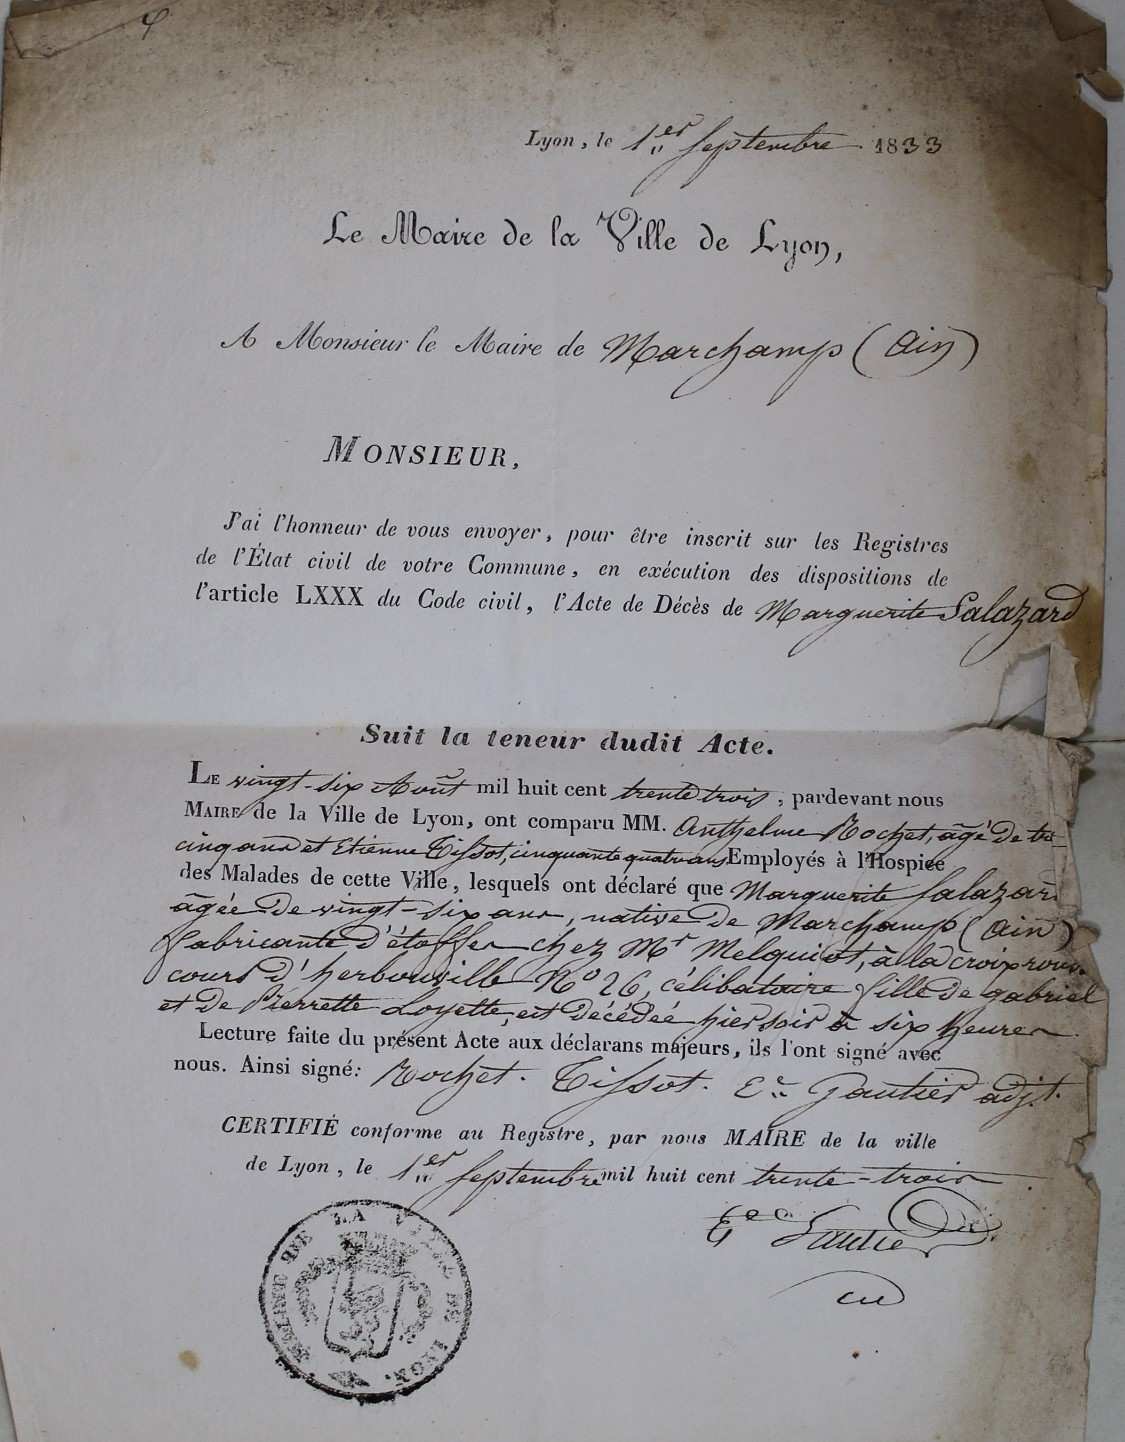 Lyon, le 1er Septembre 1833
Le Maire de la Ville de Lyon,
A Monsieur le Maire de Marchamp (Ain)
MONSIEUR,
J'ai l'honneur de vous envoyer, pour être inscrit sur les Registres
de l'État civil de votre Commune, en exécution des dispositions de
l'article LXXX du Code civil, l'Acte de Décès de Marguerite Salazard
Suit la teneur dudit Acte.
LE vingt-six Août mil huit cent trente trois, pardevant nous
MAIRE de la Ville de Lyon, ont comparu MM. Anthelme Rochet, âgé de
cinq ans et Etienne Tissot, cinquante quatre ans Employés à l'Hospice
des Malades de cette Ville, lesquels ont déclaré que Marguerite Salazard
âgée de vingt-six ans, native de Marchamp (Ain)
fabricante d'étoffes chez Mr Melquiot, à la croix rousse
cours d'herbouville No 26, célibataire fille de gabriel
et de Pierrette Loyette, est décédée hier soir à six heures
Lecture faite du présent Acte aux déclarans majeurs, ils l'ont signé avec
nous. Ainsi signé: Rochet. Tissot. Ee Gautier adjt.
CERTIFIÉ conforme au Registre, par nous MAIRE de la ville
de Lyon, le 1er Septembre mil huit cent trente-trois
Gautier
MAIRIE DE LA VILLE DE LYON.